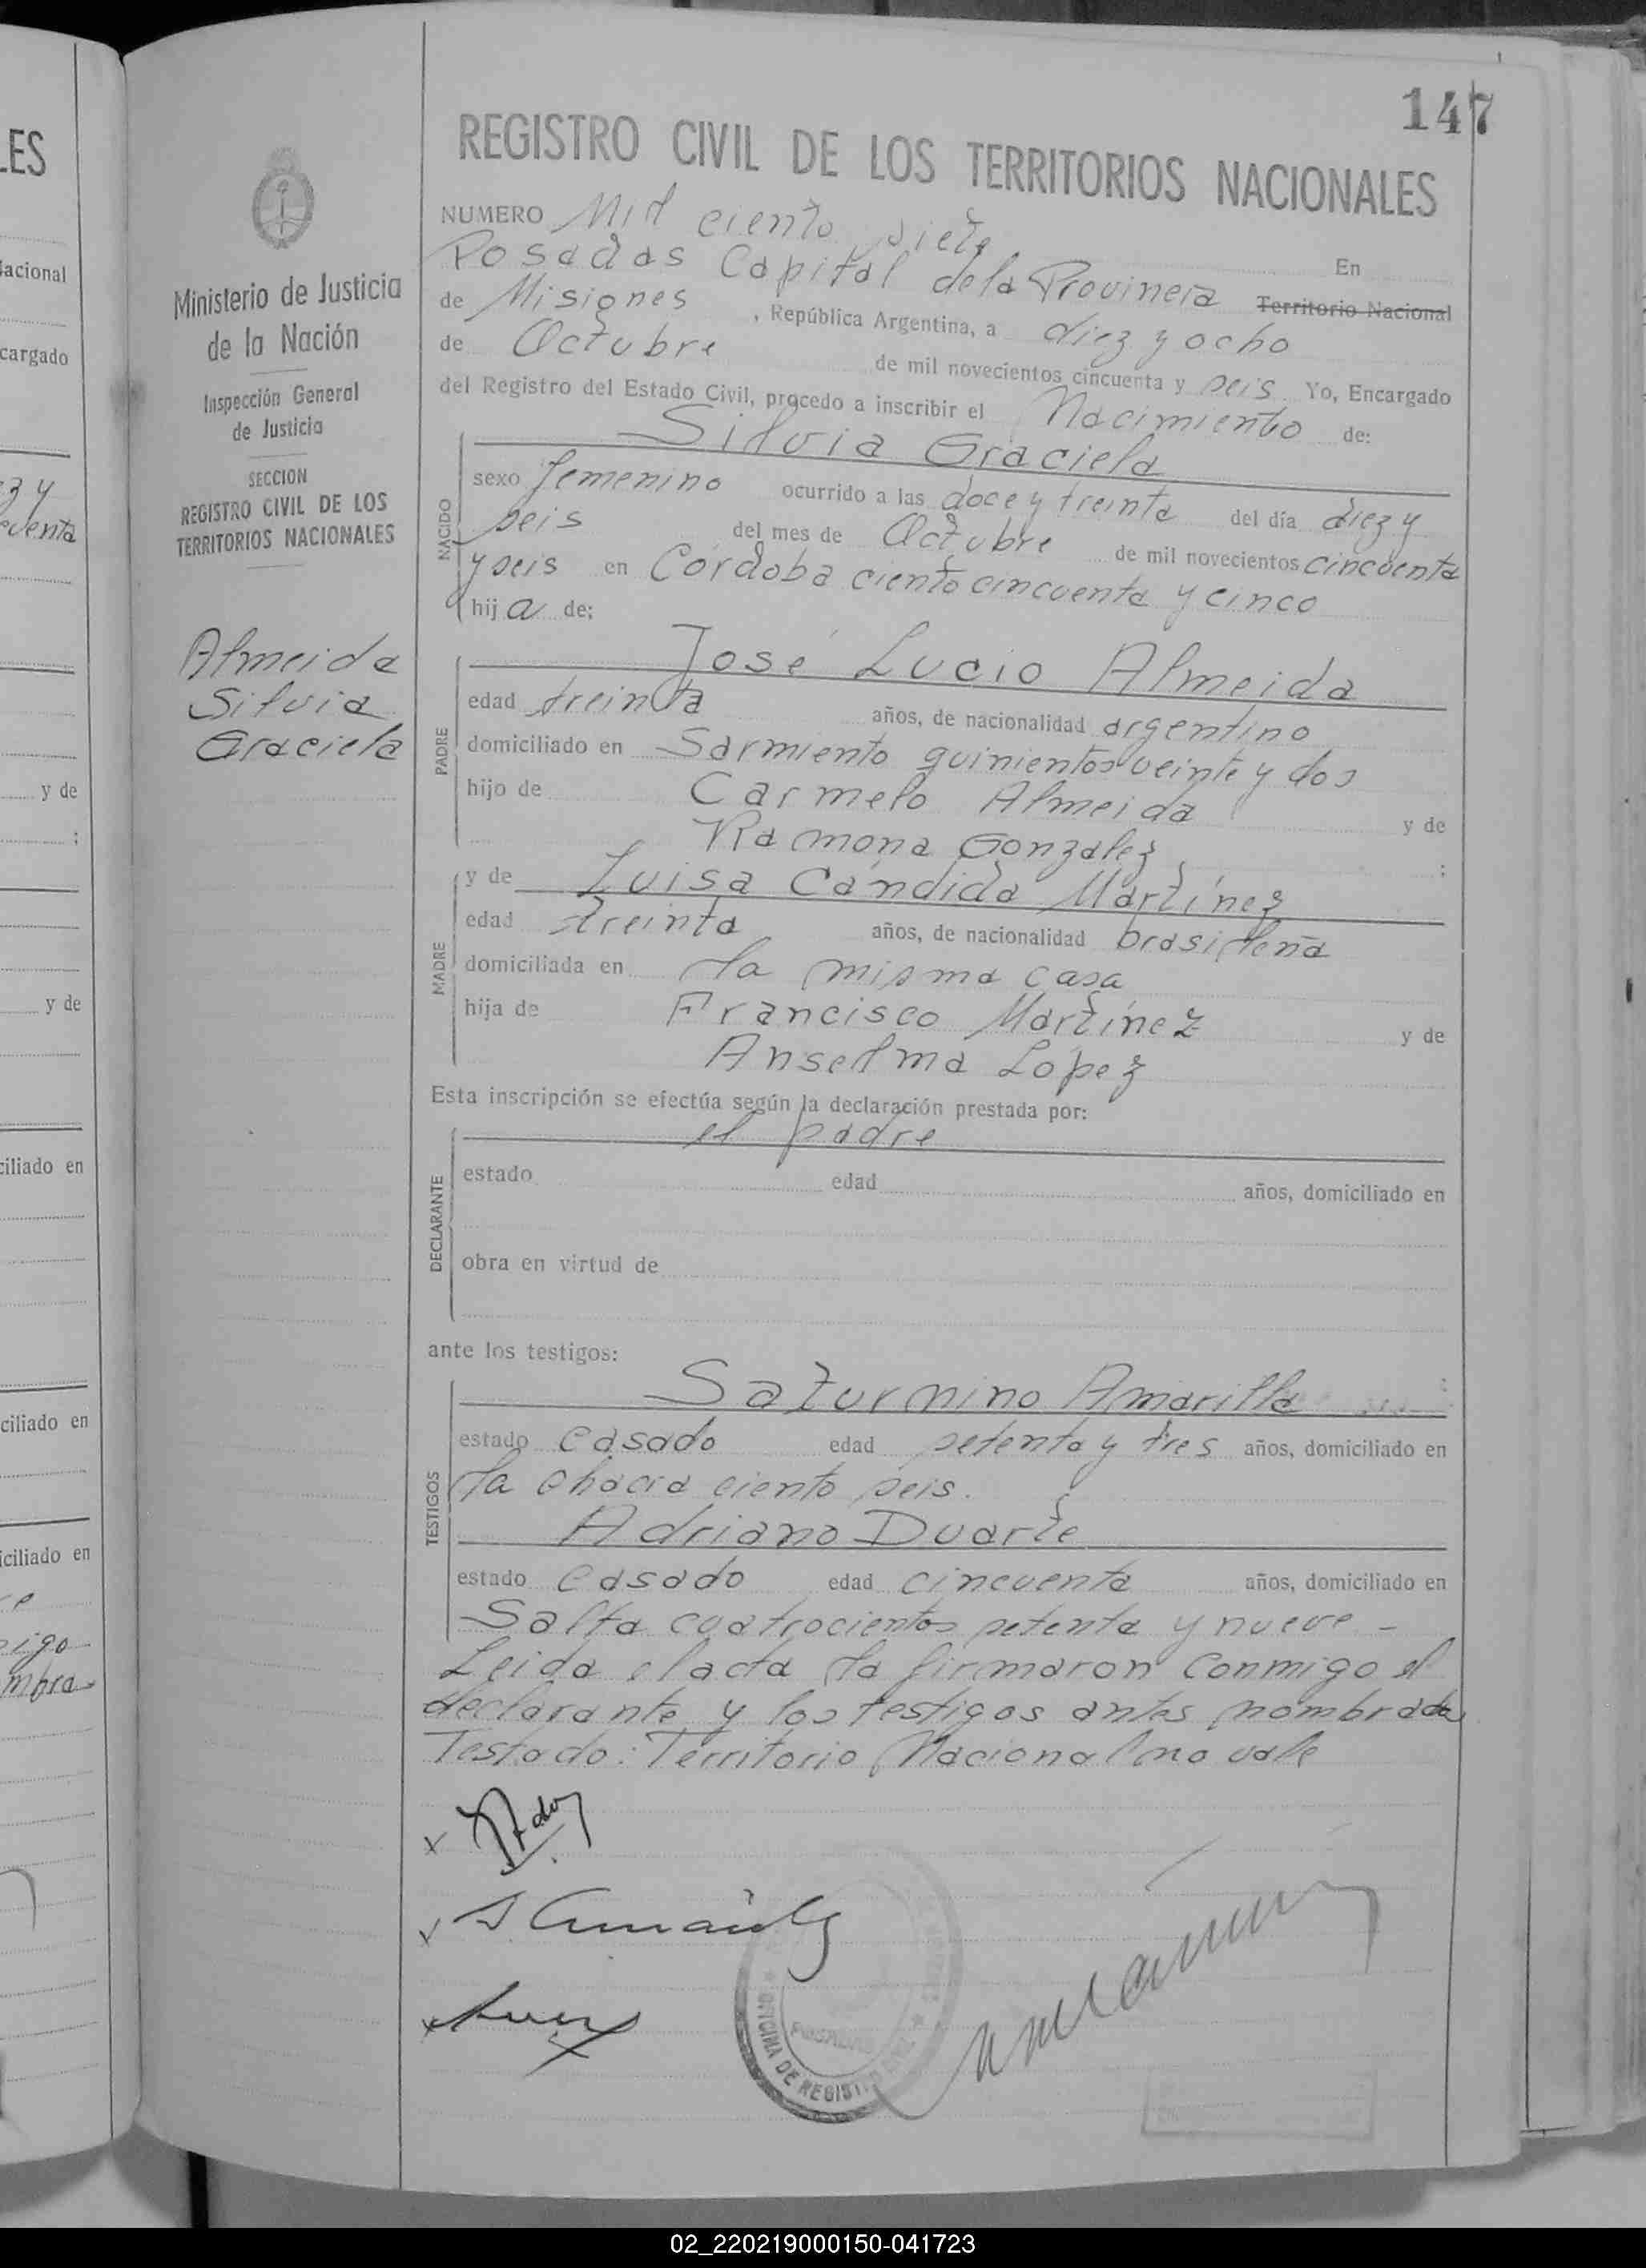 147
REGISTRO CIVIL DE LOS TERRITORIOS NACIONALES
NUMERO Mil ciento siete
Posadas Capital de la Provincia En
de Misiones Territorio Nacional
, República Argentina, a diez y ocho
de Octubre de mil novecientos cincuenta y seis Yo, Encargado
del Registro del Estado Civil, procedo a inscribir el Nacimiento de:
NACIDO
Silvia Graciela
sexo femenino ocurrido a las doce y treinta del día diez y
seis del mes de Octubre de mil novecientos cincuenta
y seis en Córdoba ciento cincuenta y cinco
hija de;
PADRE
José Lucio Almeida
edad treinta años, de nacionalidad argentino
domiciliado en Sarmiento quinientos veinte y dos
hijo de Carmelo Almeida y de
Ramona Gonzalez ;
MADRE
y de Luisa Cándida Martínez
edad treinta años, de nacionalidad brasileña
domiciliada en la misma casa
hija de Francisco Martínez y de
Anselma López
Esta inscripción se efectúa según la declaración prestada por:
DECLARANTE
el padre
estado edad años, domiciliado en
obra en virtud de
ante los testigos:
TESTIGOS
Saturnino Amarilla
estado casado edad setenta y tres años, domiciliado en
la chacra ciento seis.
Adriano Duarte
estado casado edad cincuenta años, domiciliado en
Salta cuatrocientos setenta y nueve -
Leida el acta la firmaron conmigo el
declarante y los testigos antes nombrados
Testado: Territorio Nacional no vale
Ministerio de Justicia
de la Nación
Inspección General
de Justicia
SECCION
REGISTRO CIVIL DE LOS
TERRITORIOS NACIONALES
Almeida
Silvia
Graciela
OFICINA DE REGISTRO
POSADAS
LES
Nacional
cargado
y de
;
y de
ciliado en
ciliado en
iciliado en
02_220219000150-041723